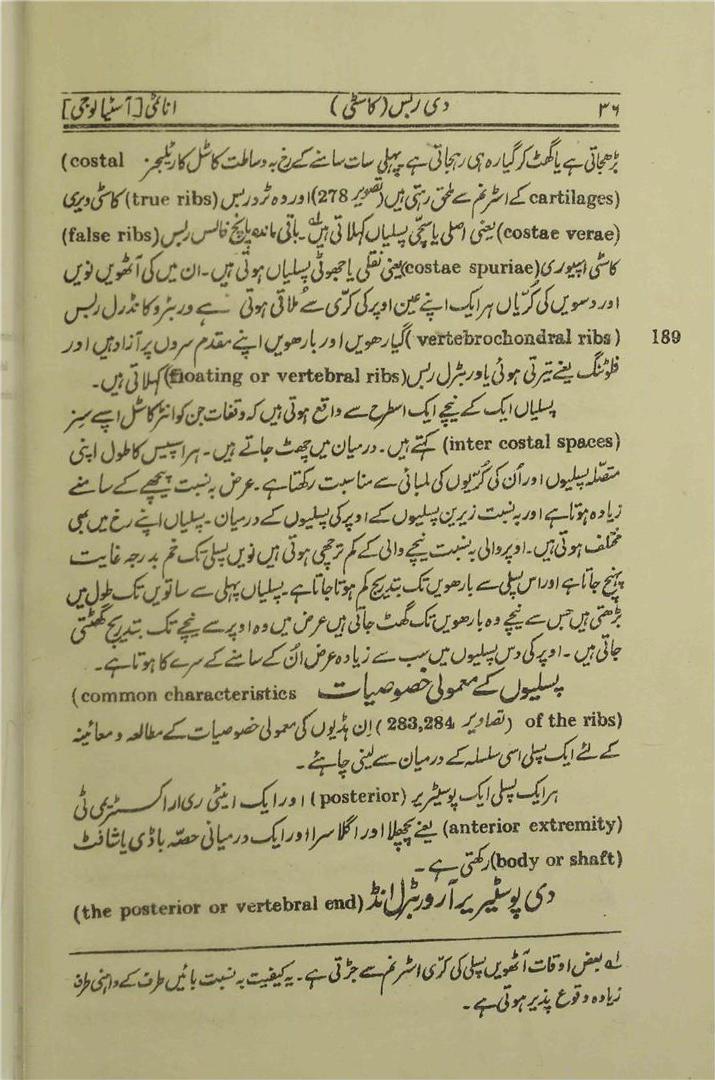 ۳۶ دی ربس (کاسٹی) اناٹمی [آسٹیالوجی]
بڑھجاتی ہے یا گھٹ کر گیارہ ہی رہجاتی ہے پہلی سات سامنے کے رخ بہ وساطت کاسٹل کارٹیلجز (costal
cartilages) کے اسٹرنم سے ملحق رہتی ہیں (تصویر 278) اور وہ ٹرو ربس (true ribs) کاسٹی ویری
(costae verae) یعنی اصلی یا سچی پسلیاں کہلاتی ہیں لہ۔ باقی ماندہ پانچ فالس ربس (false ribs)
کاسٹی اسپیوری (costae spuriae) یعنی نقلی یا جھوٹی پسلیاں ہوتی ہیں۔ ان میں کی آٹھویں نویں
اور دسویں کی کڑیاں ہر ایک اپنے عین اوپر کی کڑی سے ملاتی ہوتی ہے ورٹبرو کانڈرل ربس
(vertebrochondral ribs) گیارھویں اور بارھویں اپنے مقدم سروں پر آزاد ہیں اور
189
فلوٹنگ یعنے تیرتی ہوئی یا ورٹبرل ربس (floating or vertebral ribs) کہلاتی ہیں۔
پسلیاں ایک کے نیچے ایک اسطرح سے واقع ہوتی ہیں کہ وقفات جن کو انٹر کاسٹل اسپے سِنر
(inter costal spaces) کہتے ہیں۔ درمیان میں چھٹ جاتے ہیں۔ ہر اسپیس کا طول اپنی
متصلہ پسلیوں اور اُن کی کُڑیوں کی لمبائی سے مناسبت رکھتا ہے۔ عرض بہ نسبت پیچھے کے سامنے
زیادہ ہوتا ہے اور بہ نسبت زیرین پسلیوں کے اوپر کی پسلیوں کے درمیان۔ پسلیاں اپنے رخ میں بھی
مختلف ہوتی ہیں۔ اوپر والی بہ نسبت نیچے والی کے کم ترچھی ہوتی ہیں نویں پسلی تک خم بدرجہ غایت
پہنچ جاتا ہے اور اس پسلی سے بارھویں تک بتدریج کم ہوتا جاتا ہے۔ پسلیاں پہلی سے ساتویں تک طول میں
بڑھتی ہیں جس سے نیچے وہ بارھویں تک گھٹ جاتی ہیں عرض میں وہ اوپر سے نیچے تک بتدریج گھٹتی
جاتی ہیں۔ اوپر کی دس پسلیوں میں سب سے زیادہ عرض اُن کے سامنے کے سرے کا ہوتا ہے۔
پسلیوں کے معمولی خصوصیات (common characteristics
of the ribs) (تصاویر 283,284) اِن ہڈیوں کی معمولی خصوصیات کے مطالعہ و معائینہ
کے لئے ایک پسلی اسی سلسلہ کے درمیان سے لینی چاہئے۔
ہر ایک پسلی ایک پوسٹیریر (posterior) اور ایک اینٹی ری ار اکسٹریمٹی ٹی
(anterior extremity) یعنے پچھلا اور اگلا سرا اور ایک درمیانی حصّہ باڈی یا شافٹ
(body or shaft) رکھتی ہے۔
دی پوسٹیریر آر ورٹبرل انڈ (the posterior or vertebral end)
لہ بعض اوقات آٹھویں پسلی کی کڑی اسٹرنم سے جڑتی ہے۔ یہ کیفیت بہ نسبت بائیں طرف کے داہنی طرف
زیادہ وقوع پذیر ہوتی ہے۔